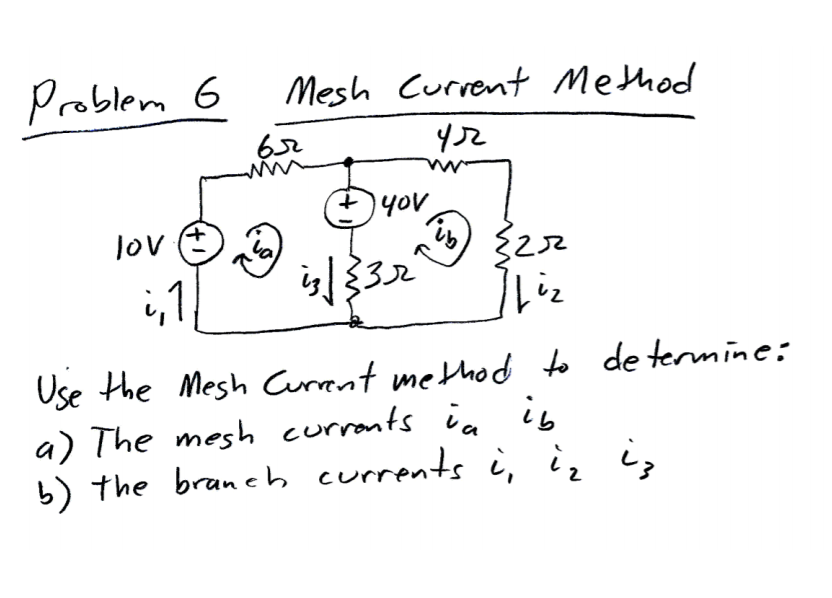 Problem 6 Mesh Current Method
6Ω 4Ω
+ 40V
10V + - ia - ib 2Ω
i3 3Ω
i1 i2
Use the Mesh Current method to determine:
a) The mesh currents ia ib
b) the branch currents i1 i2 i3